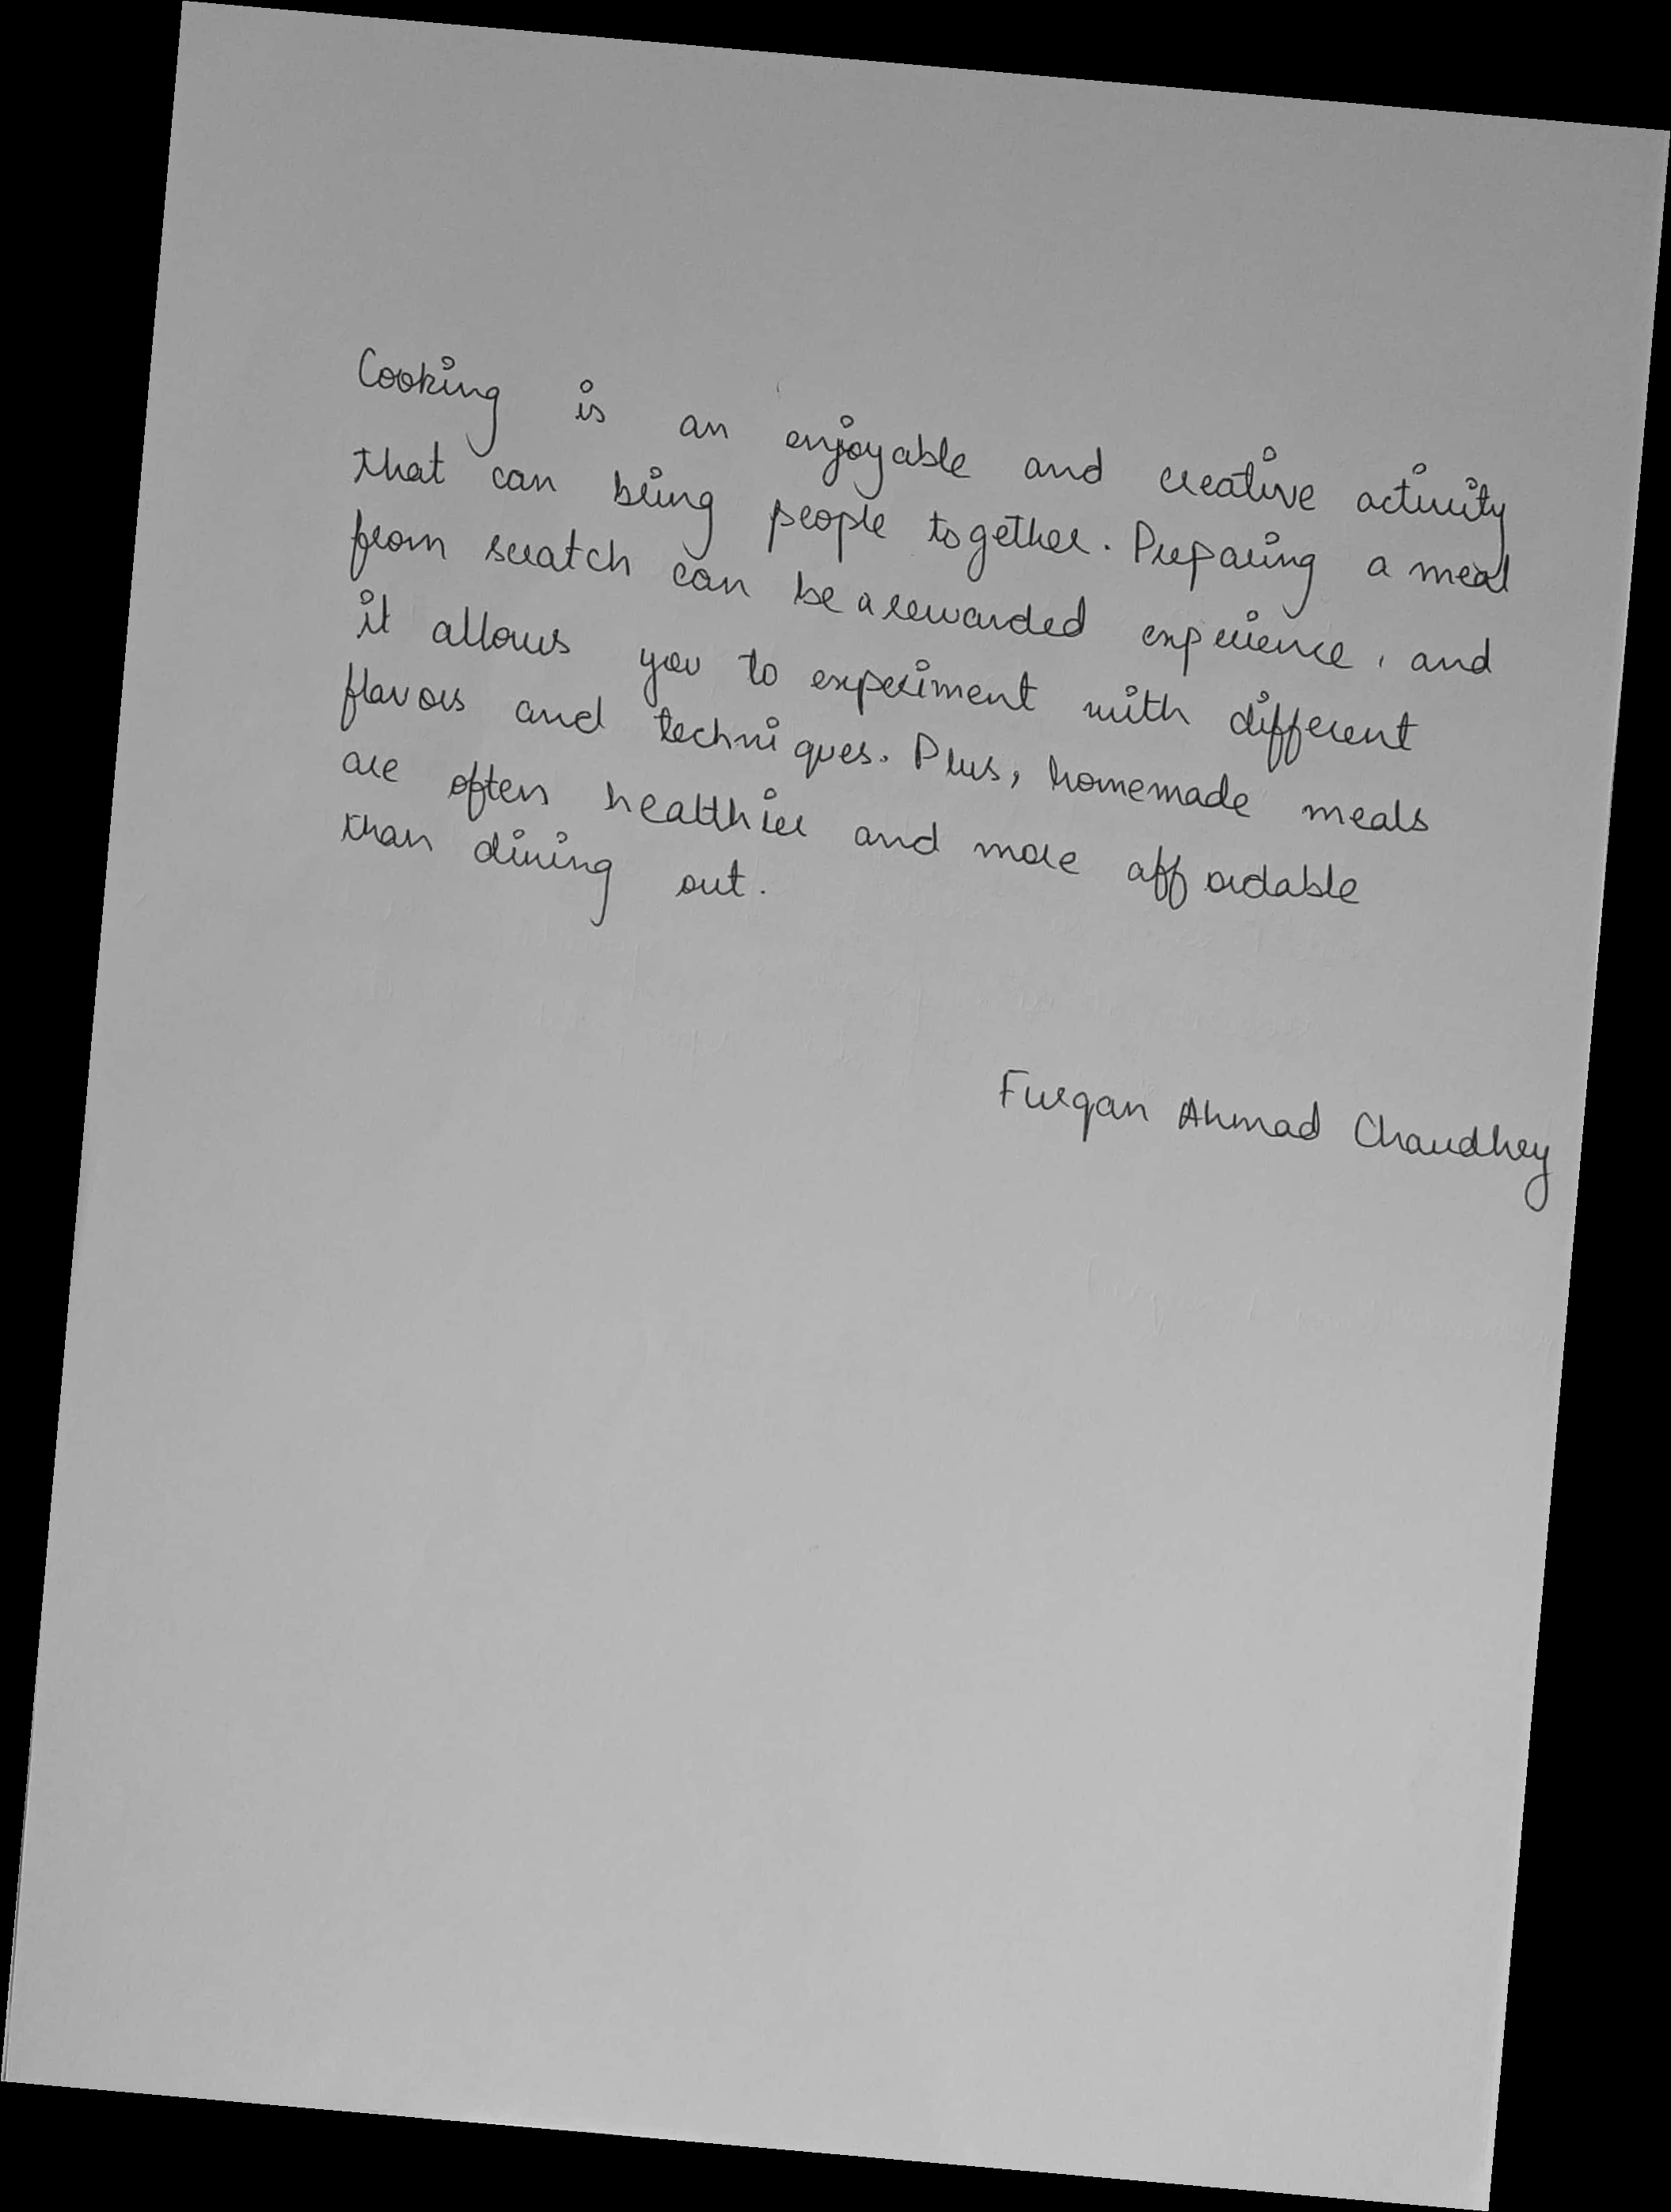 Cooking is an enjoyable and creative activity
that can bring people together. Preparing a meal
from scratch can be a rewarded experience, and
it allows you to experiment with different
flavors and techniques. Plus, homemade meals
are often healthier and more affordable
than dining out.
Furqan Ahmad Chaudhry